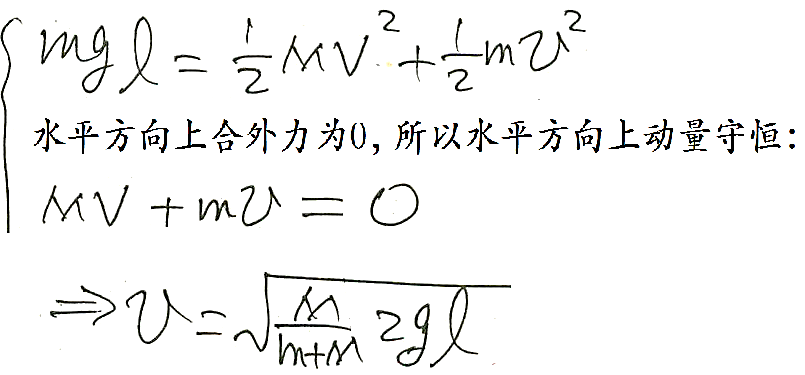 mgl = 1/2 MV² + 1/2 mv²
水平方向上合外力为0, 所以水平方向上动量守恒:
MV + mv = 0
⇒ v = √(M/(m+M) 2gl)